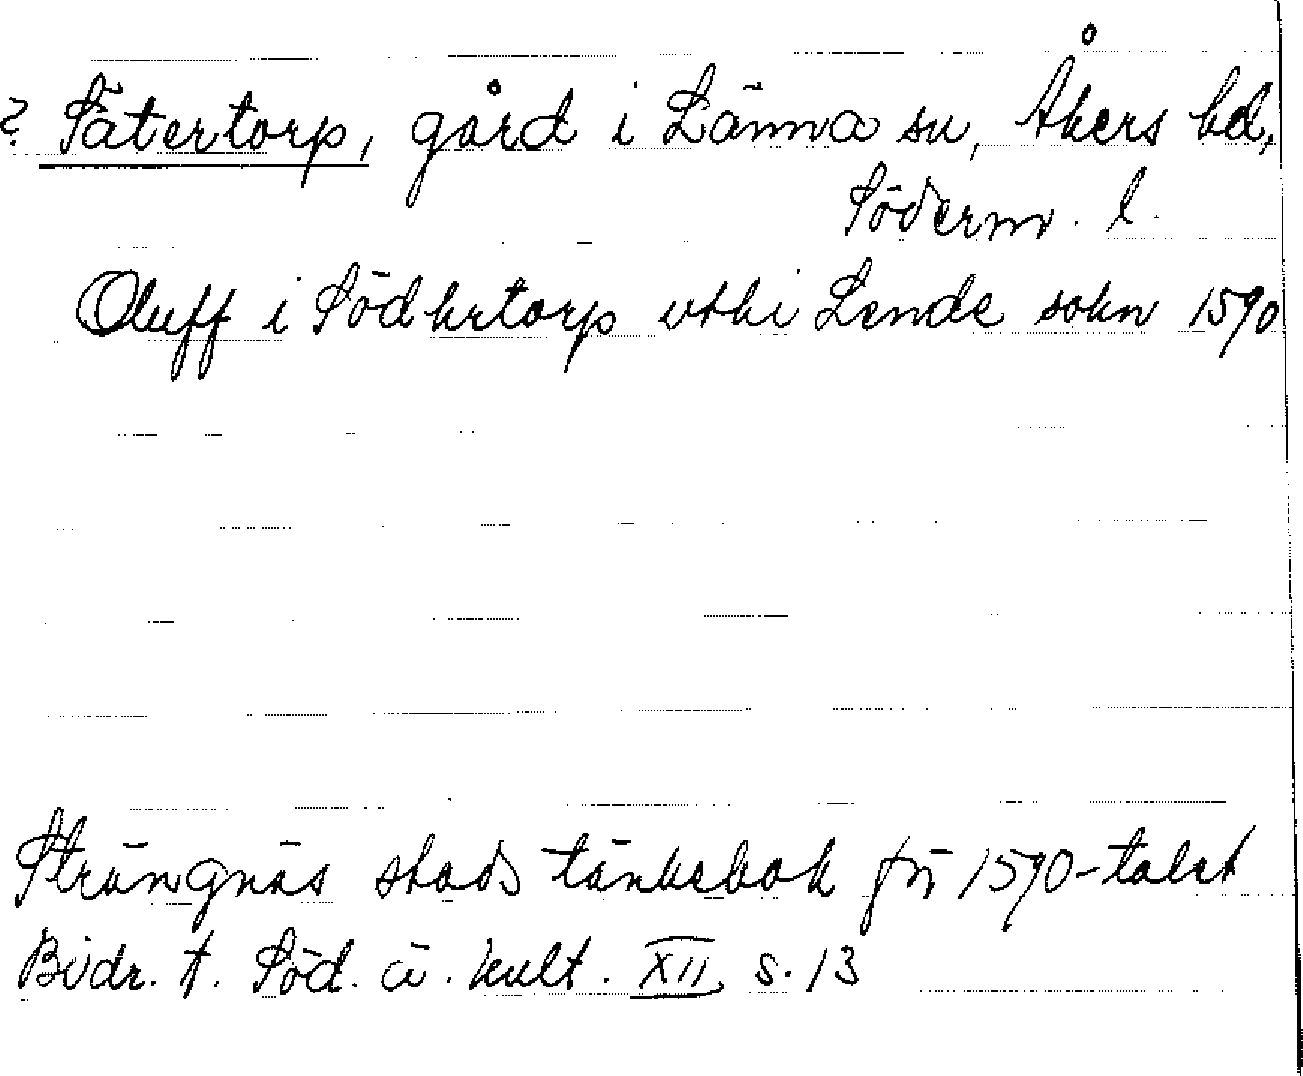 ? Sätertorp, gård i Länna sn, Åkers hd,
Söderm. l.
Oluff i Södhrtorp vthi Lende sokn 1590
Strängnäs stads tänkebok för 1590-talet
Bidr. t. Söd. ä. kult. XII s. 13